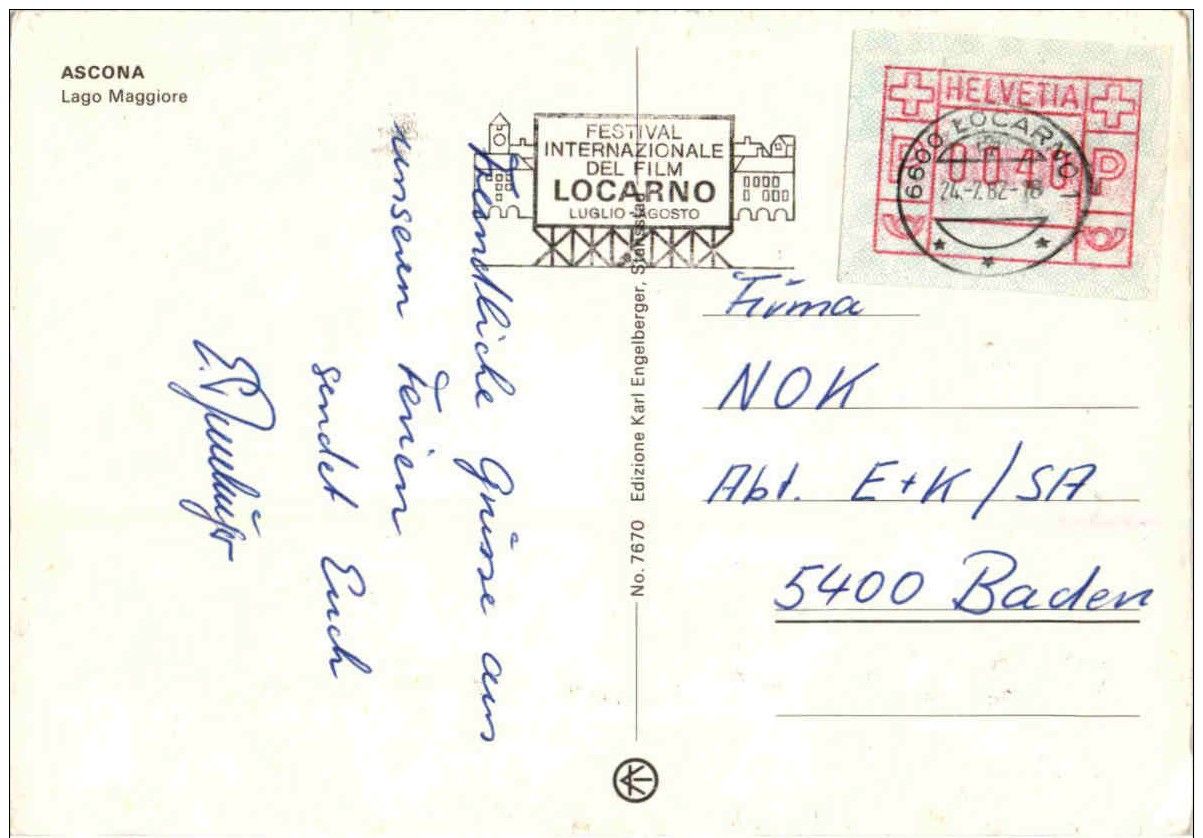 ASCONA
Lago Maggiore
FESTIVAL
INTERNAZIONALE
DEL FILM
LOCARNO
LUGLIO-AGOSTO
HELVETIA
P 0040 P
6600 LOCARNO 1
24.-7.82-18
Freundliche Grüsse aus
unseren Ferien
sendet Euch
No. 7670 Edizione Karl Engelberger, Stansstad
Firma
NOK
Abt. E+K/SA
5400 Baden